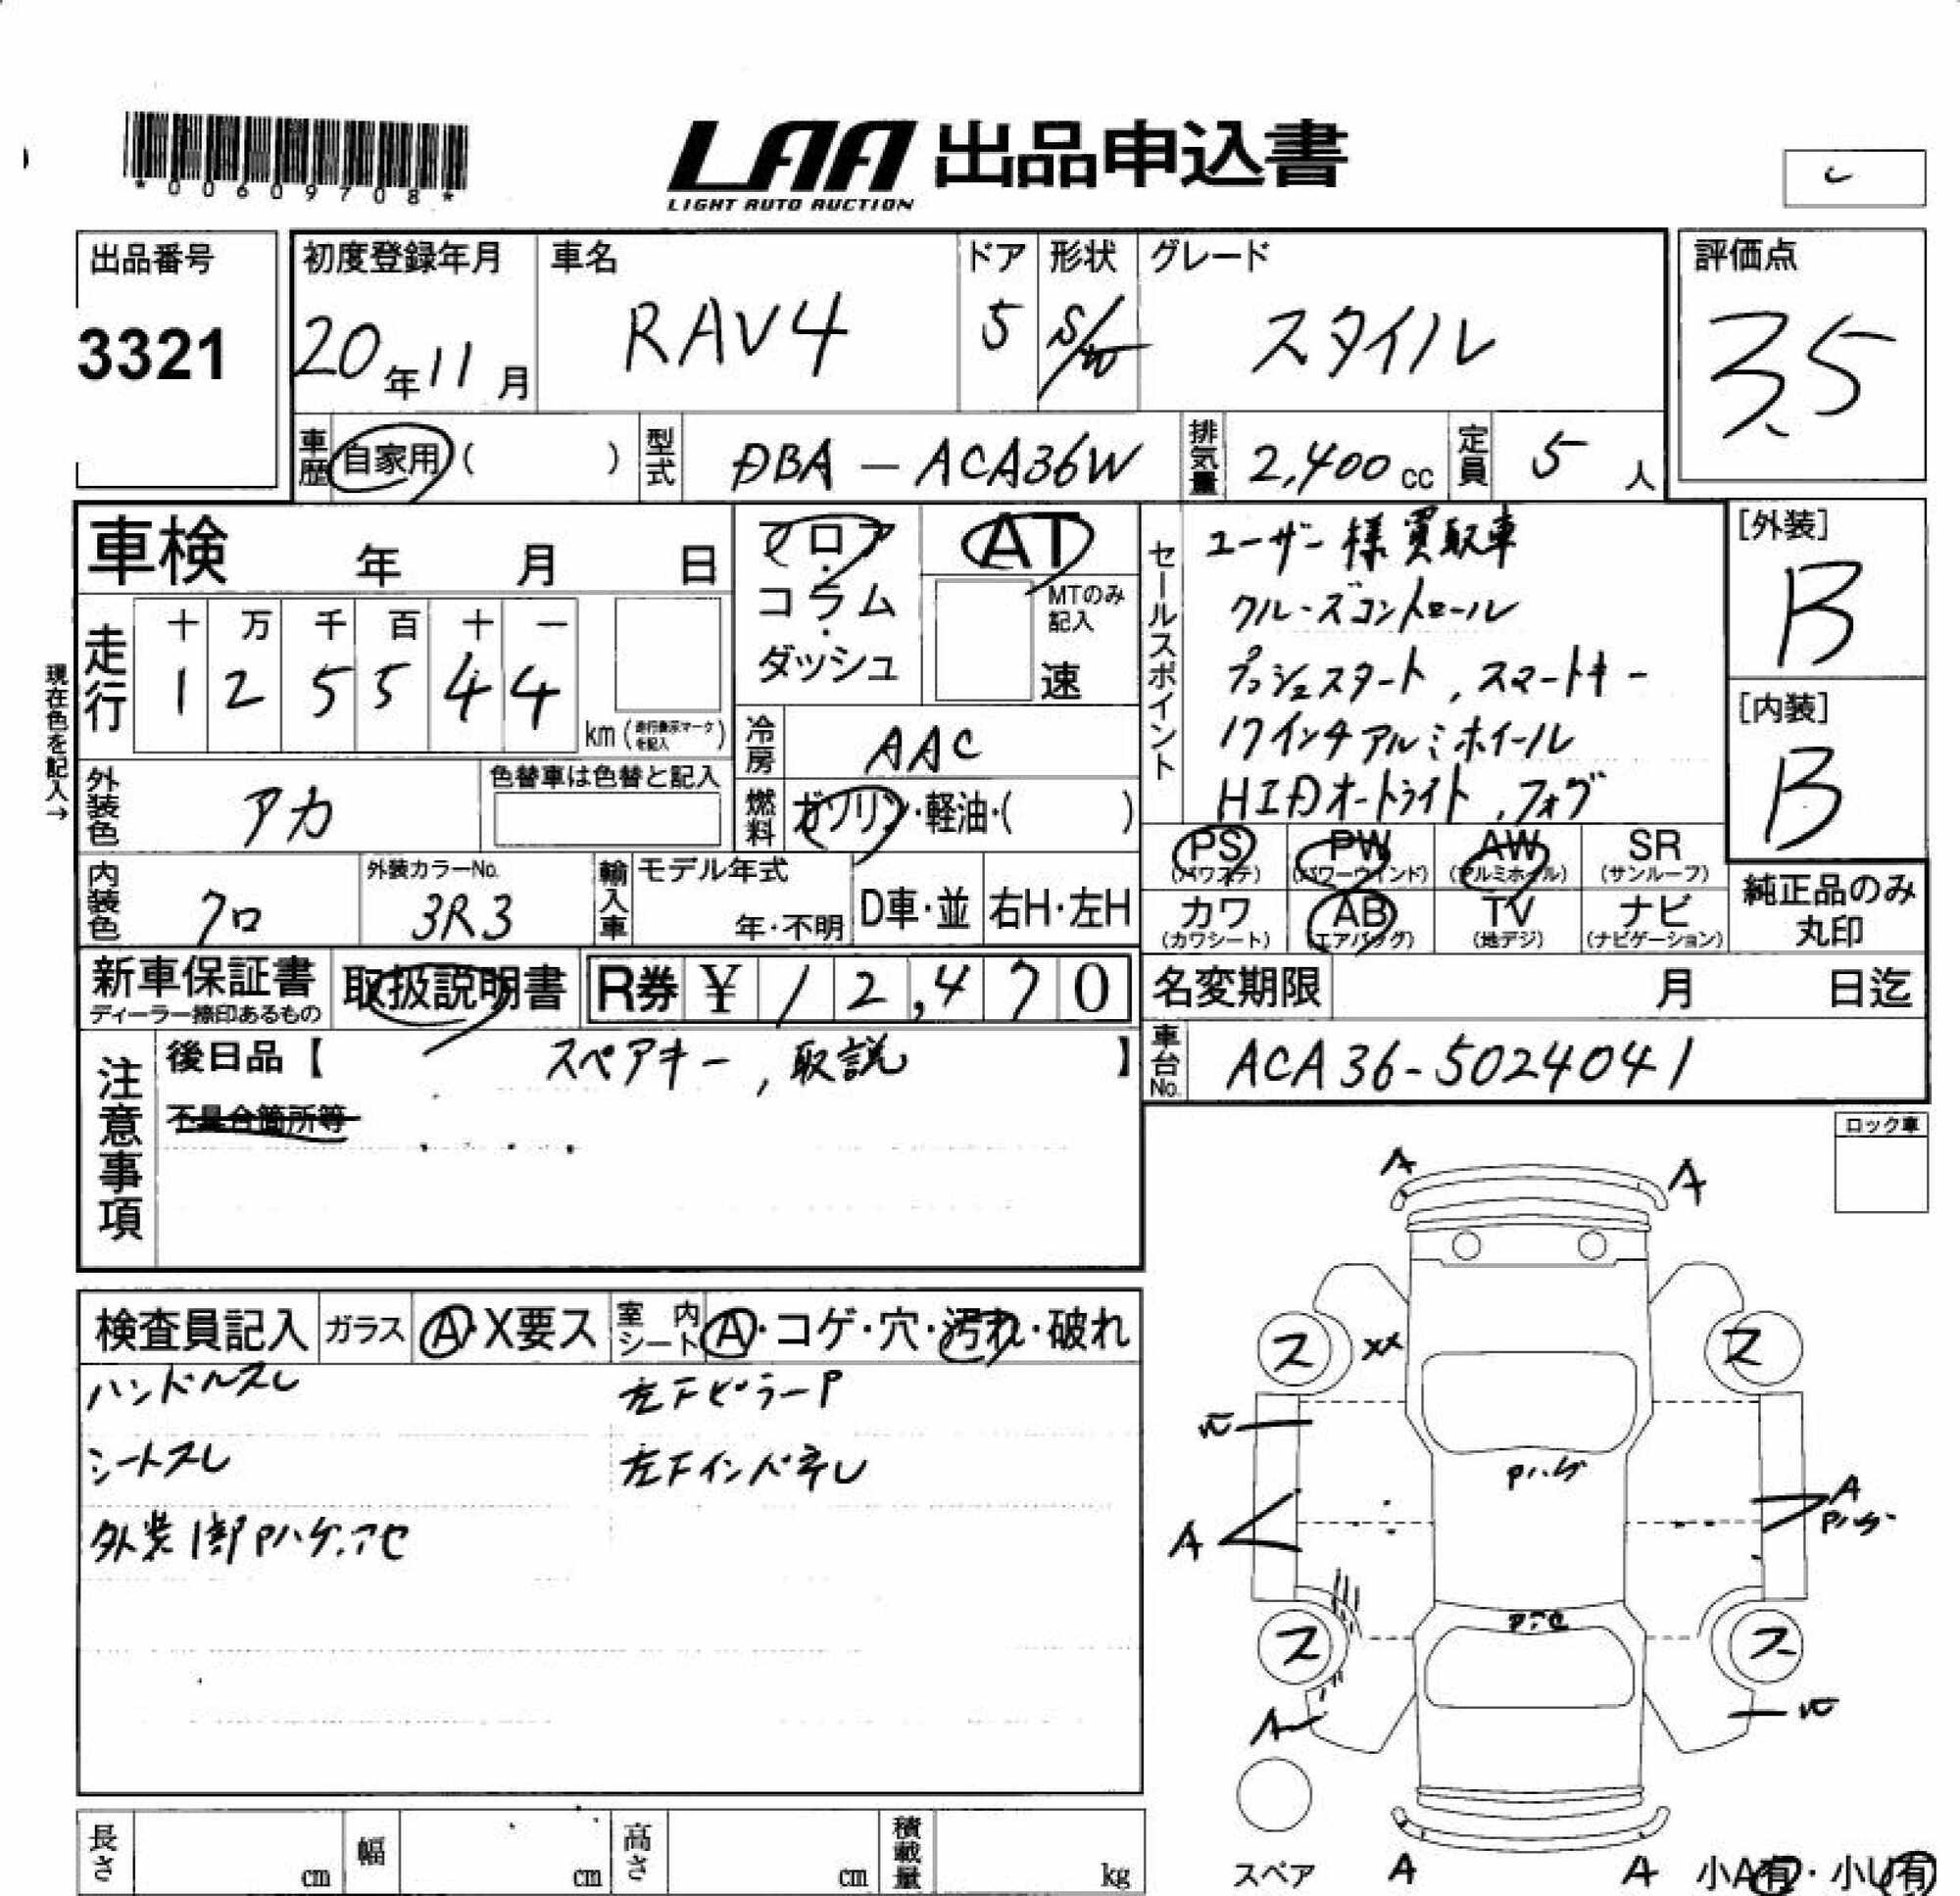 *00609708*
LAA 出品申込書
LIGHT AUTO AUCTION
出品番号
3321
初度登録年月
20年11月
車名
RAV4
ドア
5
形状
S/W
グレード
スタイル
評価点
3.5
車歴
自家用( )
型式
DBA-ACA36W
排気量
2,400cc
定員
5人
車検 年 月 日
フロア・
コラム・
ダッシュ
AT
MTのみ
記入
速
セールスポイント
ユーザー様買取車
クルーズコントロール
プッシュスタート,スマートキー
17インチアルミホイール
HIDオートライト,フォグ
[外装]
B
[内装]
B
現在色を記入→
走行
十 万 千 百 十 一
1 2 5 5 4 4
km(走行表示マークを記入)
冷房
AAC
燃料
ガソリン・軽油・( )
外装色
アカ
色替車は色替と記入
内装色
クロ
外装カラーNo.
3R3
輸入車
モデル年式
年・不明
D車・並
右H・左H
PS
(パワステ)
PW
(パワーウインド)
AW
(アルミホイール)
SR
(サンルーフ)
カワ
(カワシート)
AB
(エアバッグ)
TV
(地デジ)
ナビ
(ナビゲーション)
純正品のみ
丸印
新車保証書
ディーラー捺印あるもの
取扱説明書
R券 ¥12,470
名変期限 月 日迄
車台No.
ACA36-5024041
注意事項
後日品【 スペアキー,取説 】
不具合箇所等
ロック車
検査員記入
ガラス
A・X要ス
室内シート
A・コゲ・穴・汚れ・破れ
ハンドルスレ
左Fピラー P
シートスレ
左Fインパネ U
外装1部Pハゲ.アセ
A
A
ス
XX
ス
Pハゲ
A
A
Pハゲ
Pアセ
ス
ス
A
A
A
スペア
小A有・小U有
長さ cm
幅 cm
高さ cm
積載量 kg